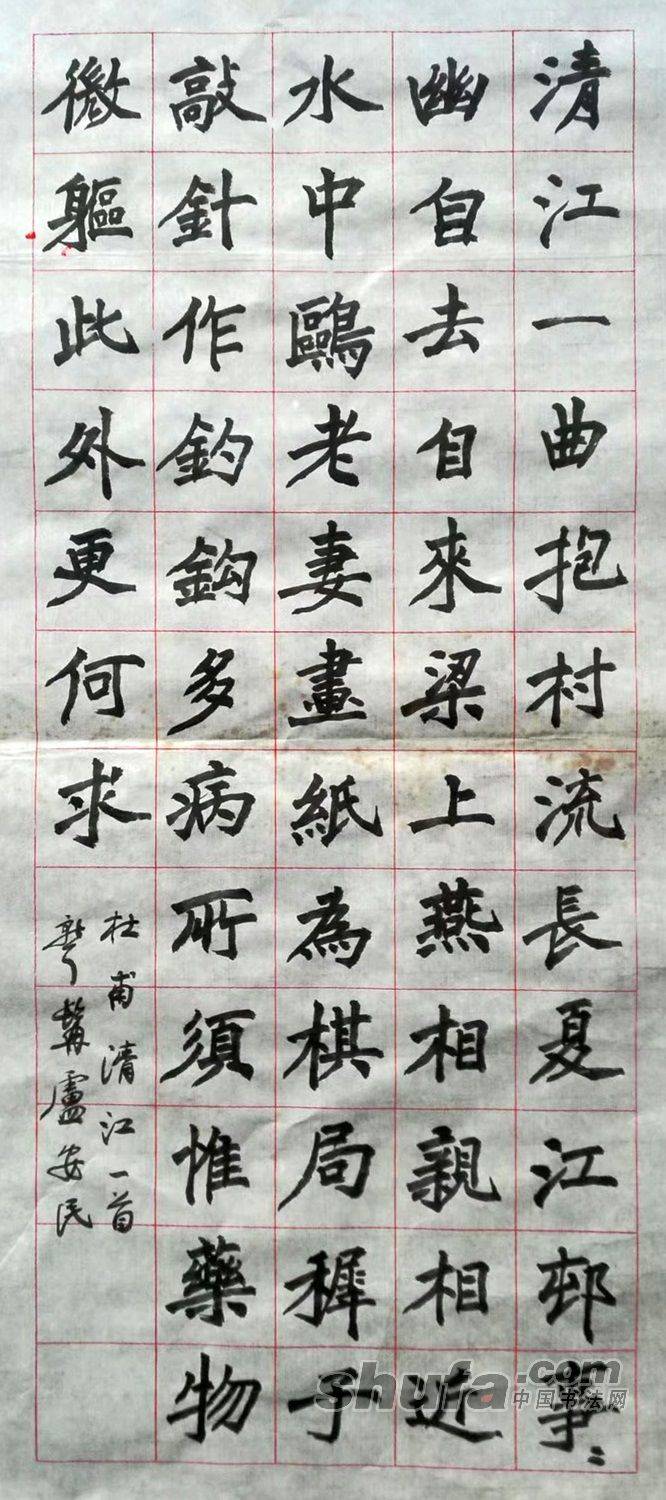 清江一曲抱村流長夏江邨事〻
幽自去自來梁上燕相親相近
水中鷗老妻畫紙為棋局稺子
敲針作釣鈎多病所須惟藥物
微軀此外更何求
杜甫清江一首
盧安民
shufa.com
中国书法网